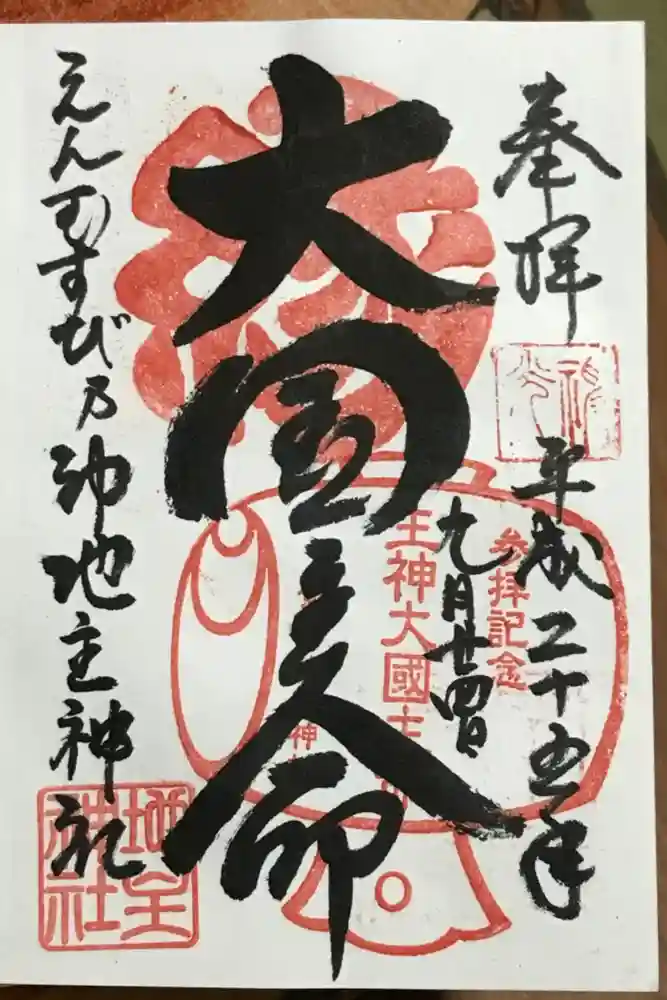 奉拝
平成二十五年
九月廿四日
大国主命
えんむすび乃神地主神社
参拝記念
主神大國主
神
地主神社